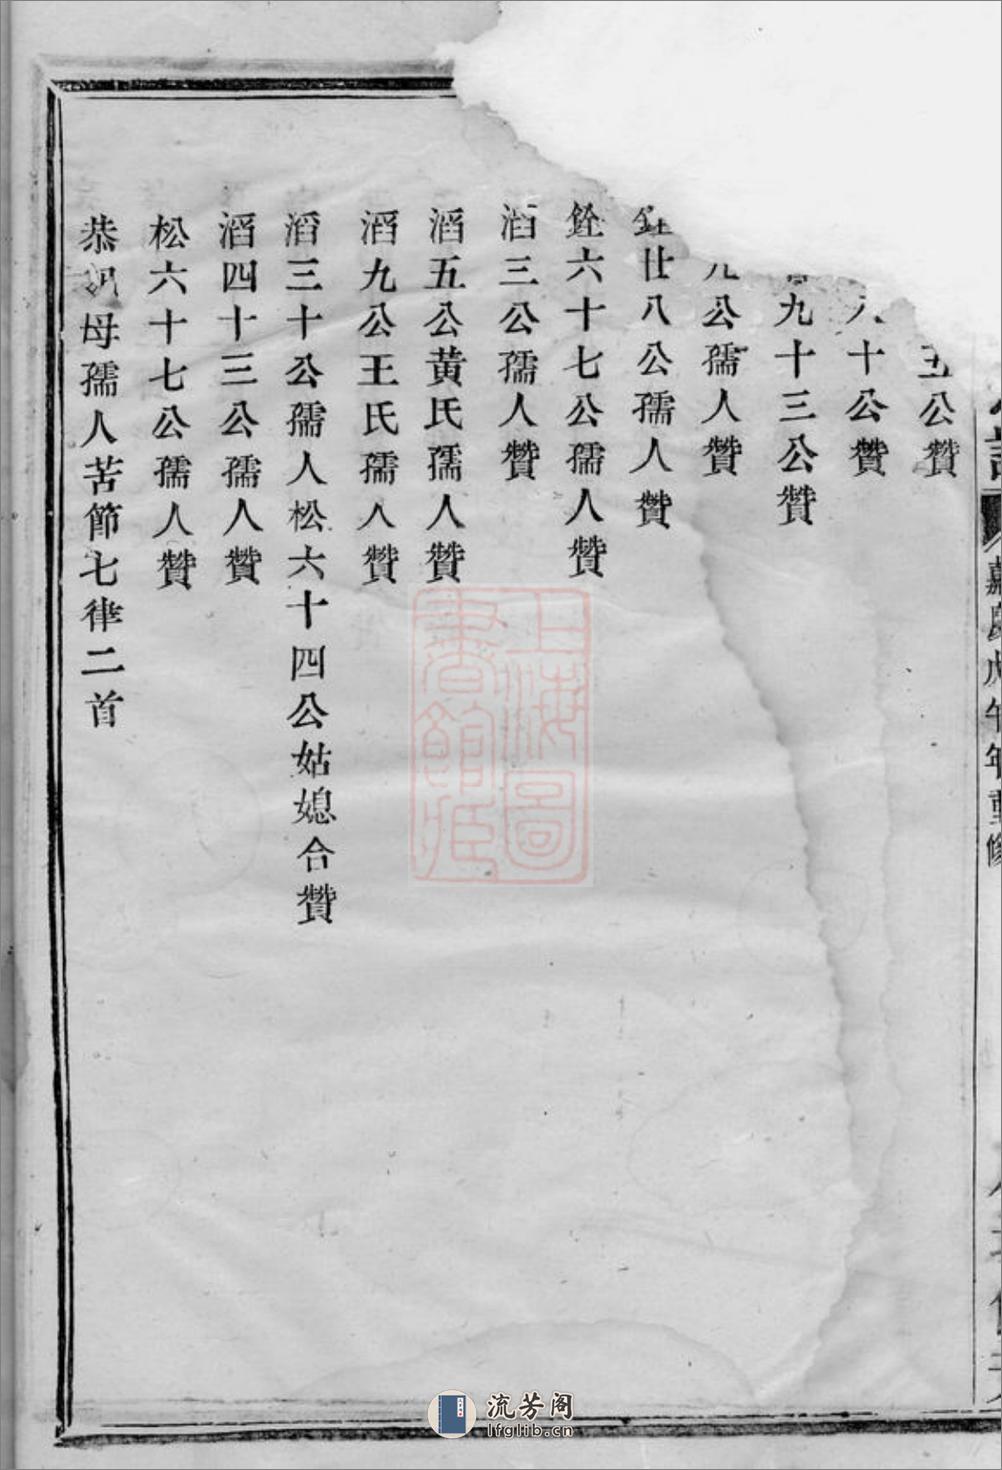 嘉慶戊午年重修
五公贊
十公贊
九十三公贊
九公孺人贊
銓廿八公孺人贊
銓六十七公孺人贊
滔三公孺人贊
滔五公黄氏孺人贊
滔九公王氏孺人贊
滔三十公孺人松六十四公姑媳合贊
滔四十三公孺人贊
松六十七公孺人贊
恭母孺人苦節七律二首
上海圖書館藏
流芳阁
lfglib.cn